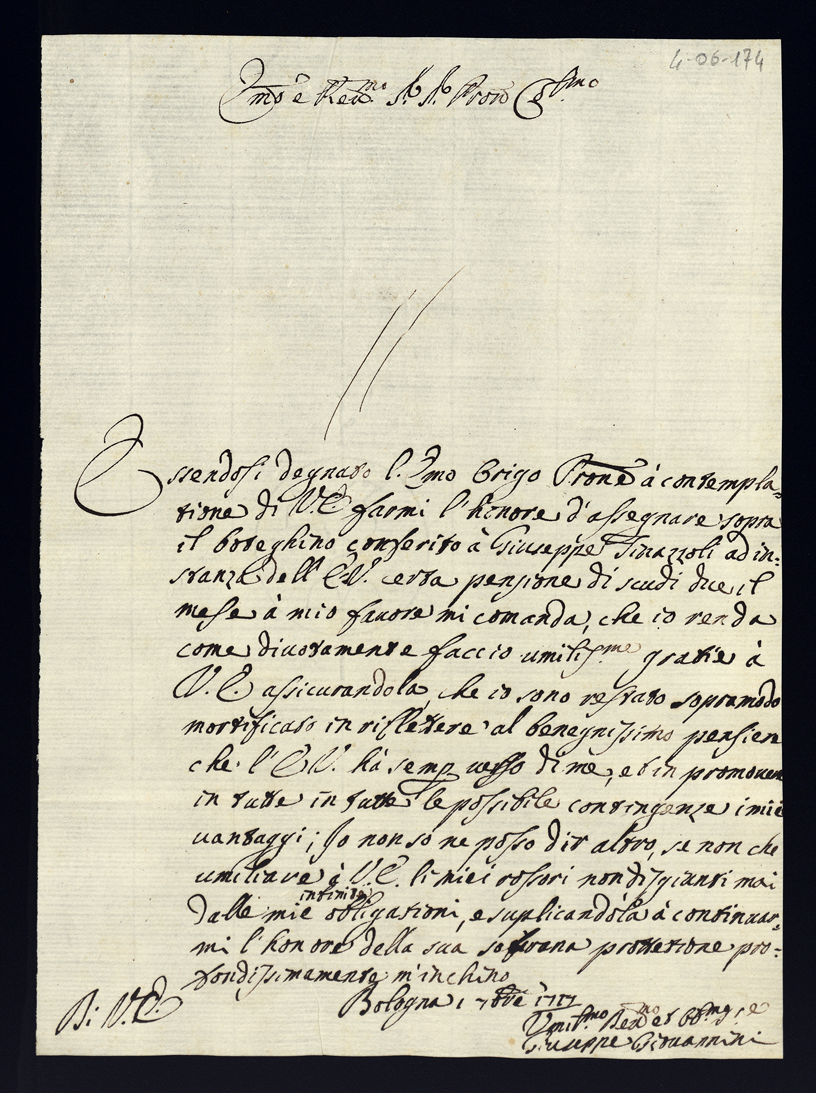 4-06-174
Emo e Revmo Sr. Sr. Pron Colmo
Essendosi degnato l. Emo Origo Prone à contempla-
tione di V. E. farmi l'honore d'assegnare sopra
il boteghino conferito à Giuseppe Tinazzoli ad in-
stanza dell E. V. certa pensione di scudi due il
mese à mio favore mi comanda, che io renda
come divotamente faccio umilissme gratie à
V. E. assicurandola, che io sono restato sopramodo
mortificato in riflettere al benegnissimo pensiere
che l'E. V. hà semp verso di mè, et in promovere
in tutte in tutte le possibile contingenze i miei
vantaggi; Io non so ne posso dir altro, se non che
umiliare à V. E. li miei rossori non disgiunti mai
dalle mie infinite obligationi, e suplicandola à continuar-
mi l'honore della sua sovrana protetione pro-
fondissimamente m'inchino
Di V. E. Bologna 1 7bre 1717
Umilmo Devmo et Obbmo Sre
Giuseppe Giovannini